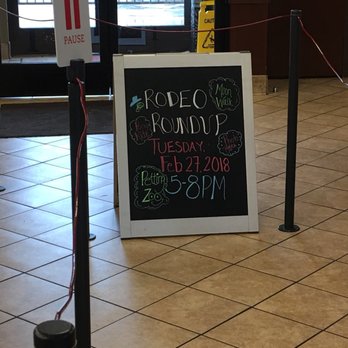 PAUSE
CAUTION
RODEO
ROUNDUP
TUESDAY,
Feb 27, 2018
5-8PM
Moon
Walk
Petting
Zoo